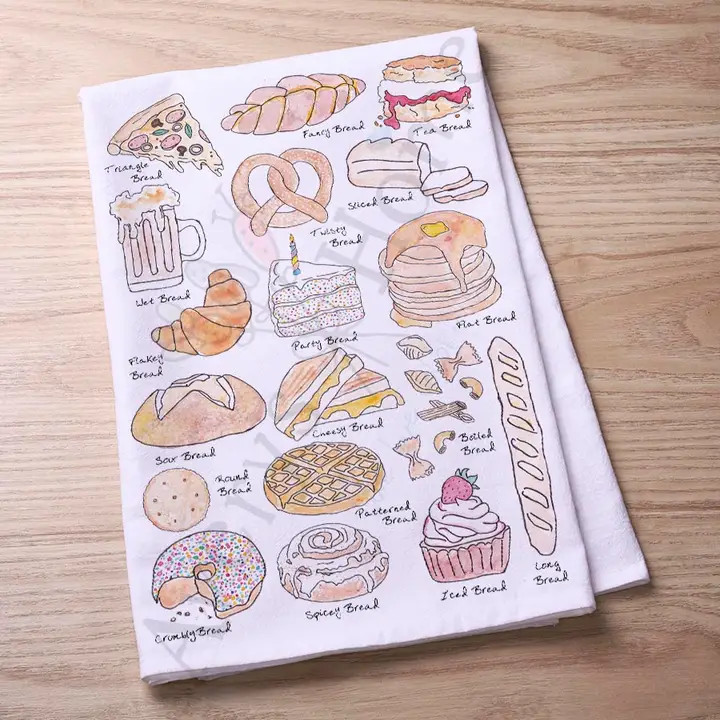 Fancy Bread
Tea Bread
Triangle
Bread
Sliced Bread
Twisty
Bread
Wet Bread
Flat Bread
Party Bread
Flakey
Bread
Cheesy Bread
Boiled
Bread
Sour Bread
Round
Bread
Patterned
Bread
Long
Bread
Iced Bread
Spicey Bread
Crumbly Bread